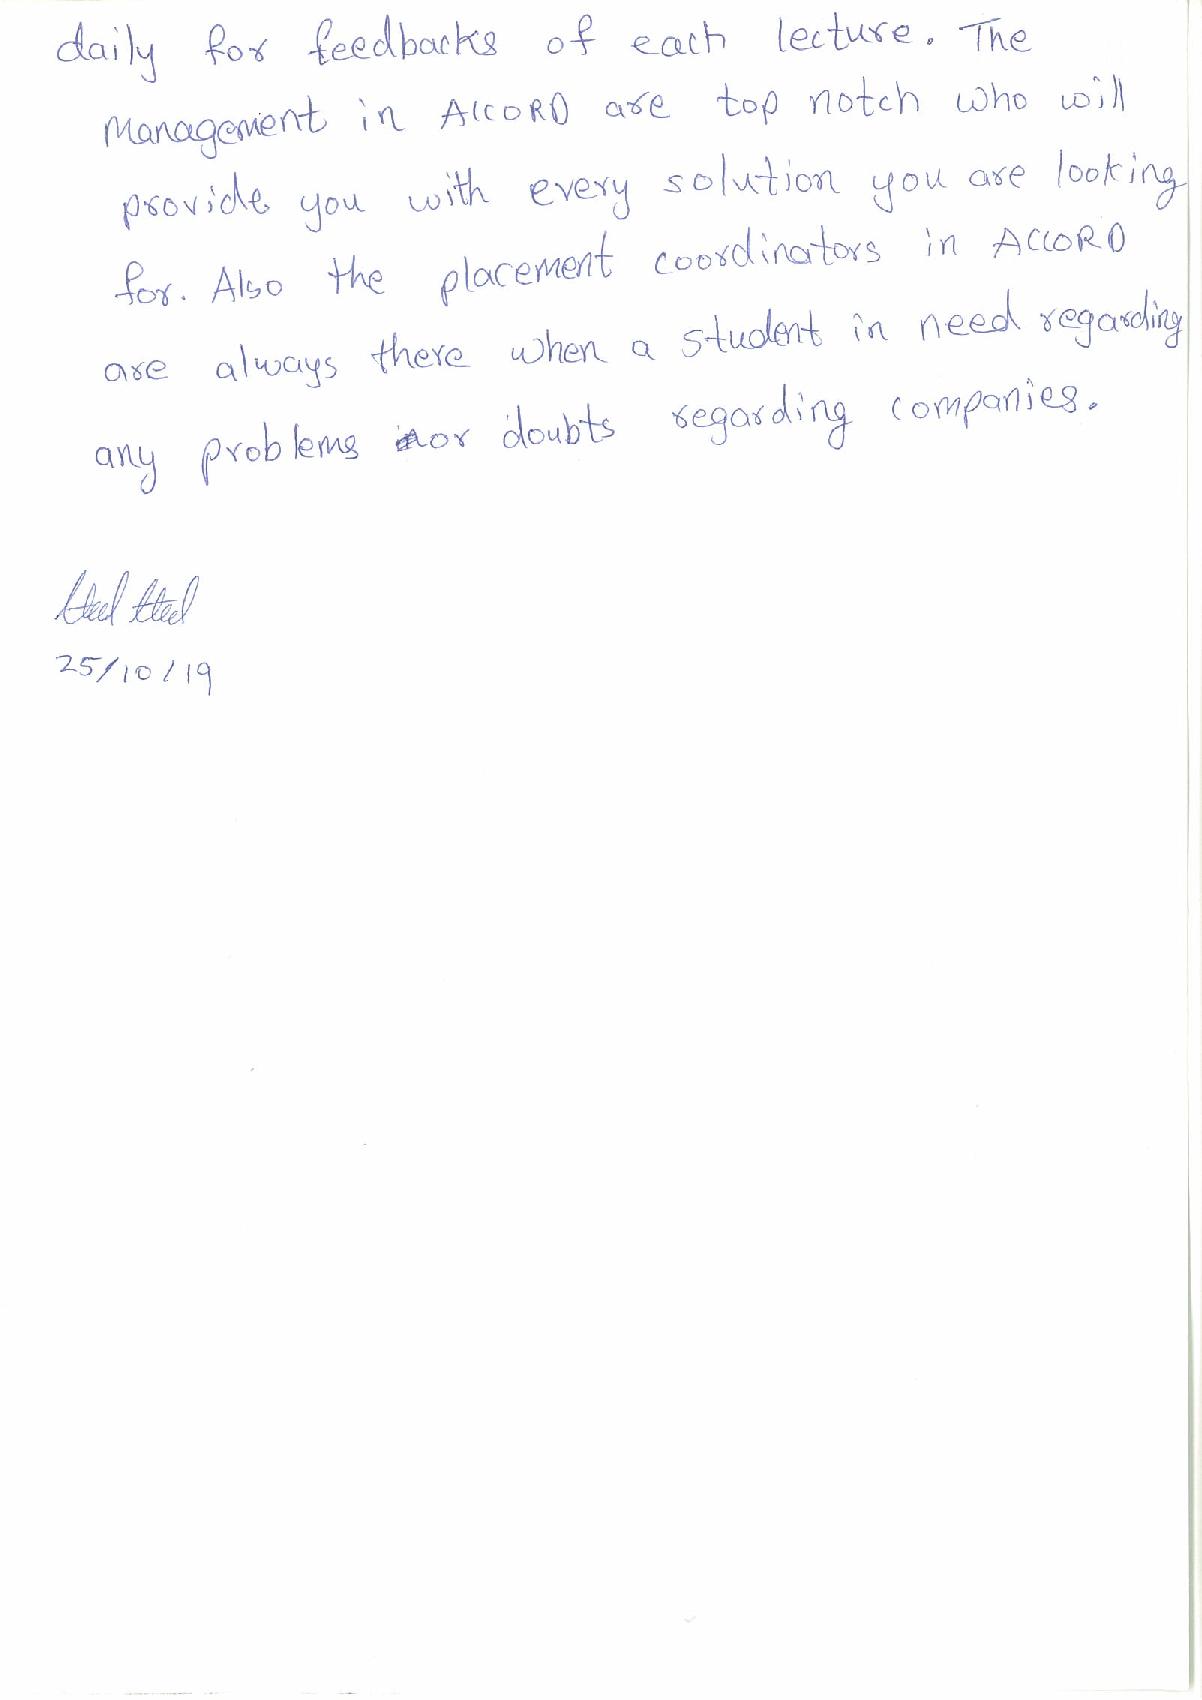 daily for feedbacks of each lecture. The
Management in ACCORD are top notch who will
provide you with every solution you are looking
for. Also the placement coordinators in ACCORD
are always there when a student in need regarding
any problems or doubts regarding companies.
25/10/19